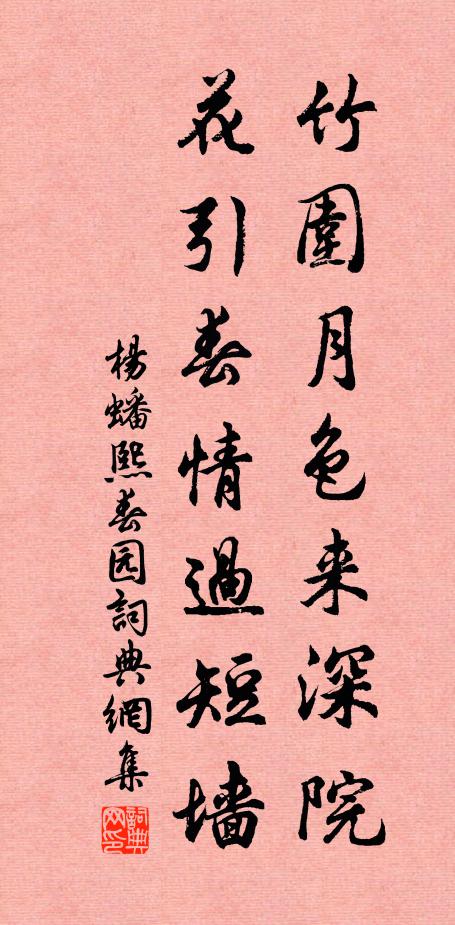 竹圍月色来深院
花引春情過短墙
楊蟠熙春园詞典網集
詞典网印